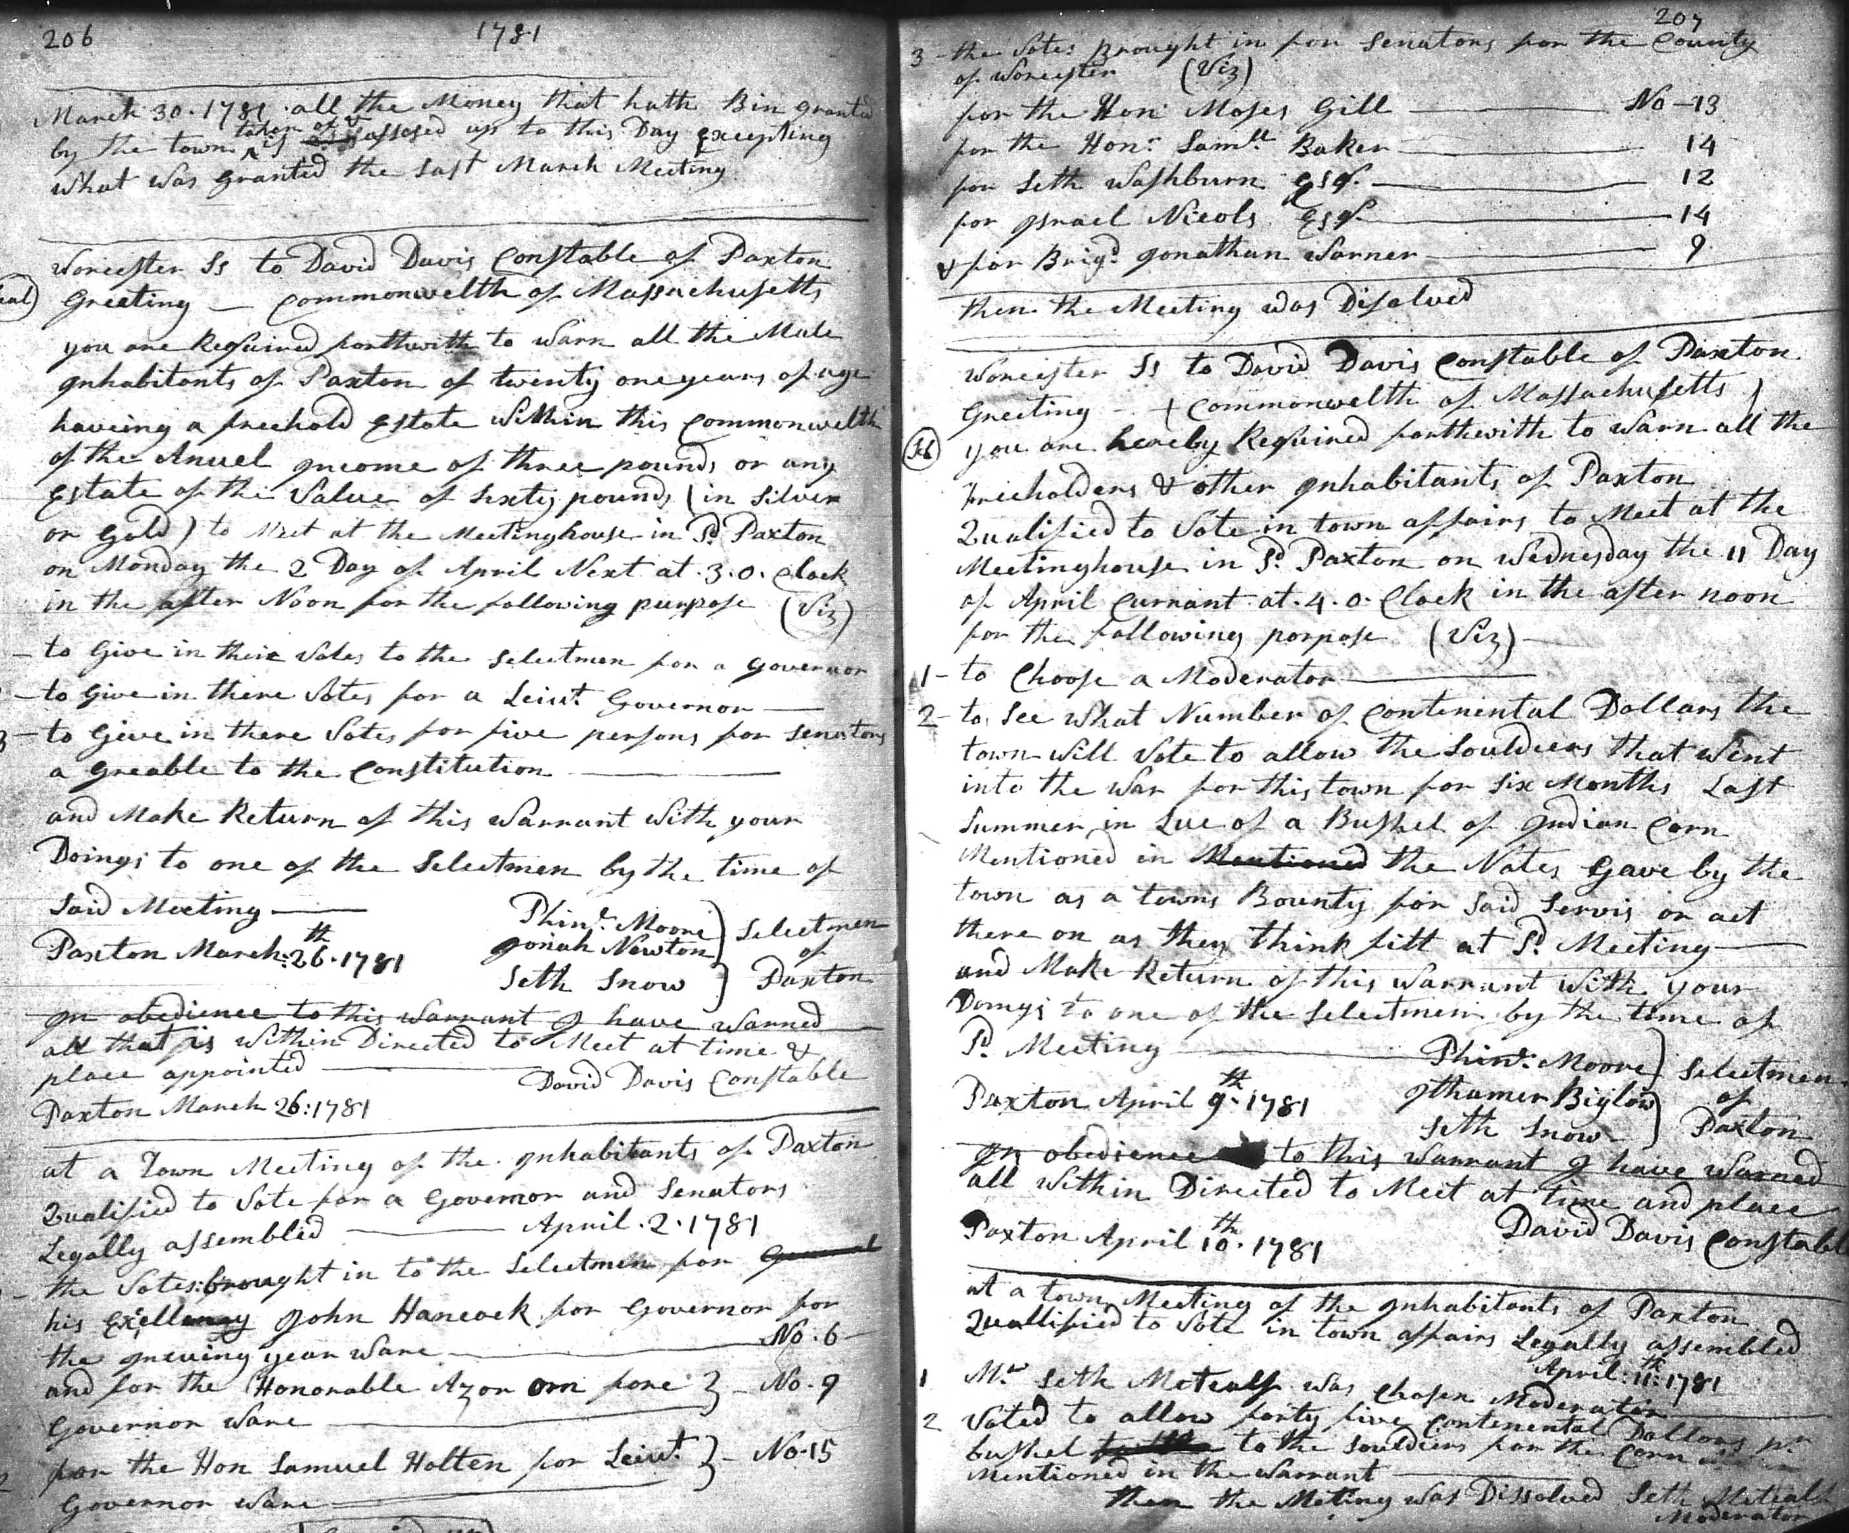 206
1781
March 30. 1781. all the Money that hath Bin granted
by the town is taken of & assesed up to this Day Excepting
What Was granted the Last March Meeting
Worcester Ss to David Davis Constable of Paxton
Greeting — Commonwelth of Massachusetts
you are Required forthwith to Warn all the Male
Inhabitants of Paxton of twenty one years of age
haveing a freehold Estate Within this Commonwelth
of the Anuel Income of three pounds or any
Estate of the Value of Sixty pounds (in Silver
or Gold) to Meet at the Meetinghouse in Sd. Paxton
on Monday the 2 Day of April Next at .3.0. Clock
in the after Noon for the following purpose (Viz)
– to Give in their Votes to the Selectmen for a Governor
– to Give in there Votes for a Leiut. Governor —
3 – to Give in there Votes for five persons for Senators
a Greable to the Constitution —
and Make Return of this Warrant With your
Doings to one of the Selectmen by the time of
Said Meeting —
Phins. Moore } Selectmen
Paxton March: 26th. 1781 Jonah Newton } of
Seth Snow } Paxton
In obedience to this Warrant I have Warned
all that is Within Directed to Meet at time &
place appointed — David Davis Constable
Paxton March 26: 1781
at a Town Meeting of the Inhabitants of Paxton
Qualified to Vote for a Governor and Senators
Legally assembled — April. 2. 1781
– the Votes brought in to the Selectmen for General
his Exellency John Hancock for Governor for
the Insuing year Ware — No. 6
and for the Honorable Azor orn fore } – No. 9
Governor Ware —
2 for the Hon Samuel Holten for Leiut. } – No. 15
Governor Ware —
207
3 – the Votes Brought in for Senators for the County
of Worcester (Viz)
for the Hon. Moses Gill — No – 13
for the Honr. Samll. Baker — 14
for Seth Washburn Esq. — 12
for Israel Nicols Esq. — 14
& for Brigd. Jonathan Warner — 9
then the Meeting was Disolved
Worcester Ss to David Davis Constable of Paxton
Greeting – (Commonwelth of Massachusetts)
you are hereby Required forthewith to Warn all the
freeholders & other Inhabitants of Paxton
Qualified to Vote in town affairs to Meet at the
Meetinghouse in Sd. Paxton on Wednesday the 11 Day
of April Currant at .4.0. Clock in the after noon
for the following porpose (Viz) –
1 – to Choose a Moderator —
2 – to See What Number of Continental Dollars the
town Will Vote to allow the Souldiers that Went
into the War for this town for Six Months Last
Summer in Lue of a Bushel of Indian Corn
Mentioned in Mentioned the Notes Gave by the
town as a towns Bounty for Said Servis or act
there on as they think fitt at Sd. Meeting —
and Make Return of this Warrant With your
Doings to one of the Selectmen by the time of
Sd. Meeting — Phins. Moore } Selectmen
Paxton April 9th. 1781 Ithamer Biglow } of
Seth Snow } Paxton
In obedience to this Warrant I have Warned
all Within Directed to Meet at time and place
Paxton April 10th. 1781 David Davis Constabl
at a town Meeting of the Inhabitants of Paxton
Quallified to Vote in town affairs Legally assembled
April: 11th: 1781
1 Mr Seth Metcalf Was Chosen Moderator —
2 Voted to allow forty five Contenental Dollars pr
bushel to the Souldiers for the Corn
Mentioned in the Warrant —
then the Meting Was Dissolved Seth Metcalf
Moderator